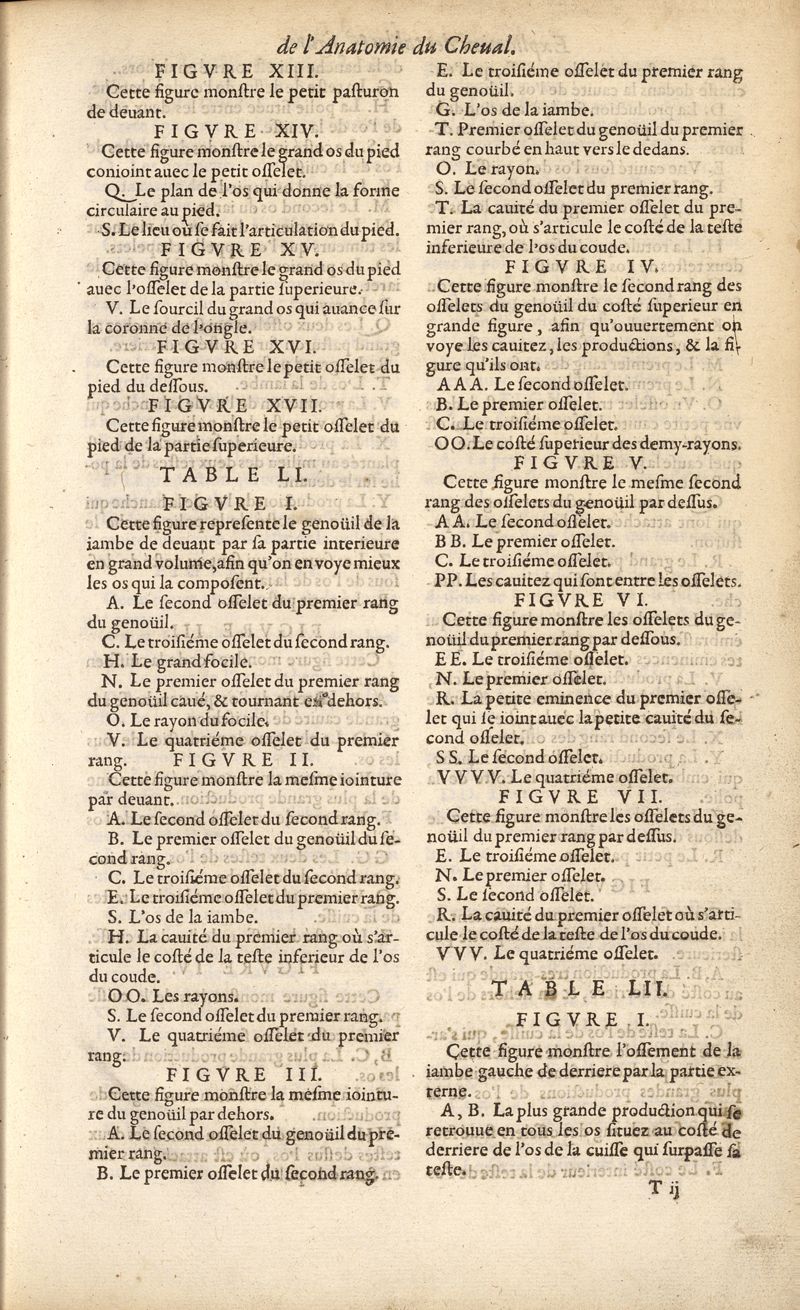 de l'Anatomie du Cheual.
FIGVRE XIII.
Cette figure monſtre le petit paſturon
de deuant.
FIGVRE XIV.
Cette figure monſtre le grand os du pied
conioint auec le petit oſſelet.
Q. Le plan de l'os qui donne la forme
circulaire au pied.
S. Le lieu où ſe fait l'articulation du pied.
FIGVRE XV.
Cette figure monſtre le grand os du pied
auec l'oſſelet de la partie ſuperieure.
V. Le ſourcil du grand os qui auance ſur
la coronne de l'ongle.
FIGVRE XVI.
Cette figure monſtre le petit oſſelet du
pied du deſſous.
FIGVRE XVII.
Cette figure monſtre le petit oſſelet du
pied de la partie ſuperieure.
TABLE LI.
FIGVRE I.
Cette figure repreſente le genoüil de la
iambe de deuant par ſa partie interieure
en grand volume, afin qu'on en voye mieux
les os qui la compoſent.
A. Le ſecond oſſelet du premier rang
du genoüil.
C. Le troiſiéme oſſelet du ſecond rang.
H. Le grand focile.
N. Le premier oſſelet du premier rang
du genoüil caué, & tournant en dehors.
O. Le rayon du focile.
V. Le quatriéme oſſelet du premier
rang. FIGVRE II.
Cette figure monſtre la meſme iointure
par deuant.
A. Le ſecond oſſelet du ſecond rang.
B. Le premier oſſelet du genoüil du ſe-
cond rang.
C. Le troiſiéme oſſelet du ſecond rang.
E. Le troiſiéme oſſelet du premier rang.
S. L'os de la iambe.
H. La cauité du premier rang où s'ar-
ticule le coſté de la teſte inferieur de l'os
du coude.
OO. Les rayons.
S. Le ſecond oſſelet du premier rang.
V. Le quatriéme oſſelet du premier
rang.
FIGVRE III.
Cette figure monſtre la meſme iointu-
re du genoüil par dehors.
A. Le ſecond oſſelet du genoüil du pre-
mier rang.
B. Le premier oſſelet du ſecond rang.
E. Le troiſiéme oſſelet du premier rang
du genoüil.
G. L'os de la iambe.
T. Premier oſſelet du genoüil du premier
rang courbé en haut vers le dedans.
O. Le rayon.
S. Le ſecond oſſelet du premier rang.
T. La cauité du premier oſſelet du pre-
mier rang, où s'articule le coſté de la teſte
inferieure de l'os du coude.
FIGVRE IV.
Cette figure monſtre le ſecond rang des
oſſelets du genoüil du coſté ſuperieur en
grande figure, afin qu'ouuertement on
voye les cauitez, les productions, & la fi-
gure qu'ils ont.
AAA. Le ſecond oſſelet.
B. Le premier oſſelet.
C. Le troiſiéme oſſelet.
OO. Le coſté ſuperieur des demy-rayons.
FIGVRE V.
Cette figure monſtre le meſme ſecond
rang des oſſelets du genoüil par deſſus.
AA. Le ſecond oſſelet.
BB. Le premier oſſelet.
C. Le troiſiéme oſſelet.
PP. Les cauitez qui ſont entre les oſſelets.
FIGVRE VI.
Cette figure monſtre les oſſelets du ge-
noüil du premier rang par deſſous.
EE. Le troiſiéme oſſelet.
N. Le premier oſſelet.
R. La petite eminence du premier oſſe-
let qui ſe ioint auec la petite cauité du ſe-
cond oſſelet.
SS. Le ſecond oſſelet.
VVVV. Le quatriéme oſſelet.
FIGVRE VII.
Cette figure monſtre les oſſelets du ge-
noüil du premier rang par deſſus.
E. Le troiſiéme oſſelet.
N. Le premier oſſelet.
S. Le ſecond oſſelet.
R. La cauité du premier oſſelet où s'arti-
cule le coſté de la teſte de l'os du coude.
VVV. Le quatriéme oſſelet.
TABLE LII.
FIGVRE I.
Cette figure monſtre l'oſſement de la
iambe gauche de derriere par la partie ex-
terne.
A, B. La plus grande production qui ſe
retrouue en tous les os ſituez au coſté de
derriere de l'os de la cuiſſe qui ſurpaſſe ſa
teſte.
T ij